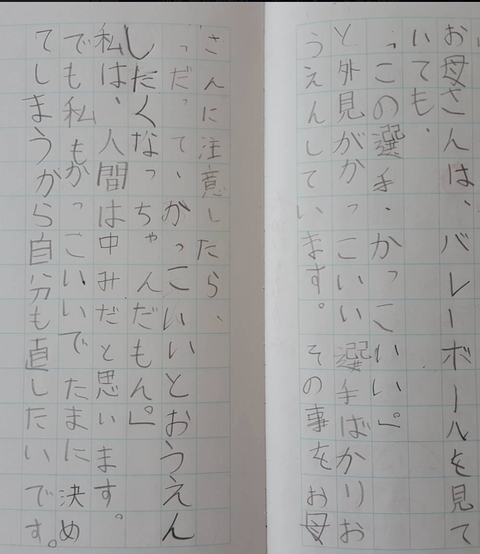 お母さんは、バレーボールを見て
いても、
「この選手、かっこいい。」
と外見がかっこいい選手ばかりお
うえんしています。その事をお母
さんに注意したら、
「だって、がっこいいとおうえん
したくなっちゃんだもん。」
私は、人間は中みだと思います。
でも私もかっこいいでたまに決め
てしまうから自分も直したいです。